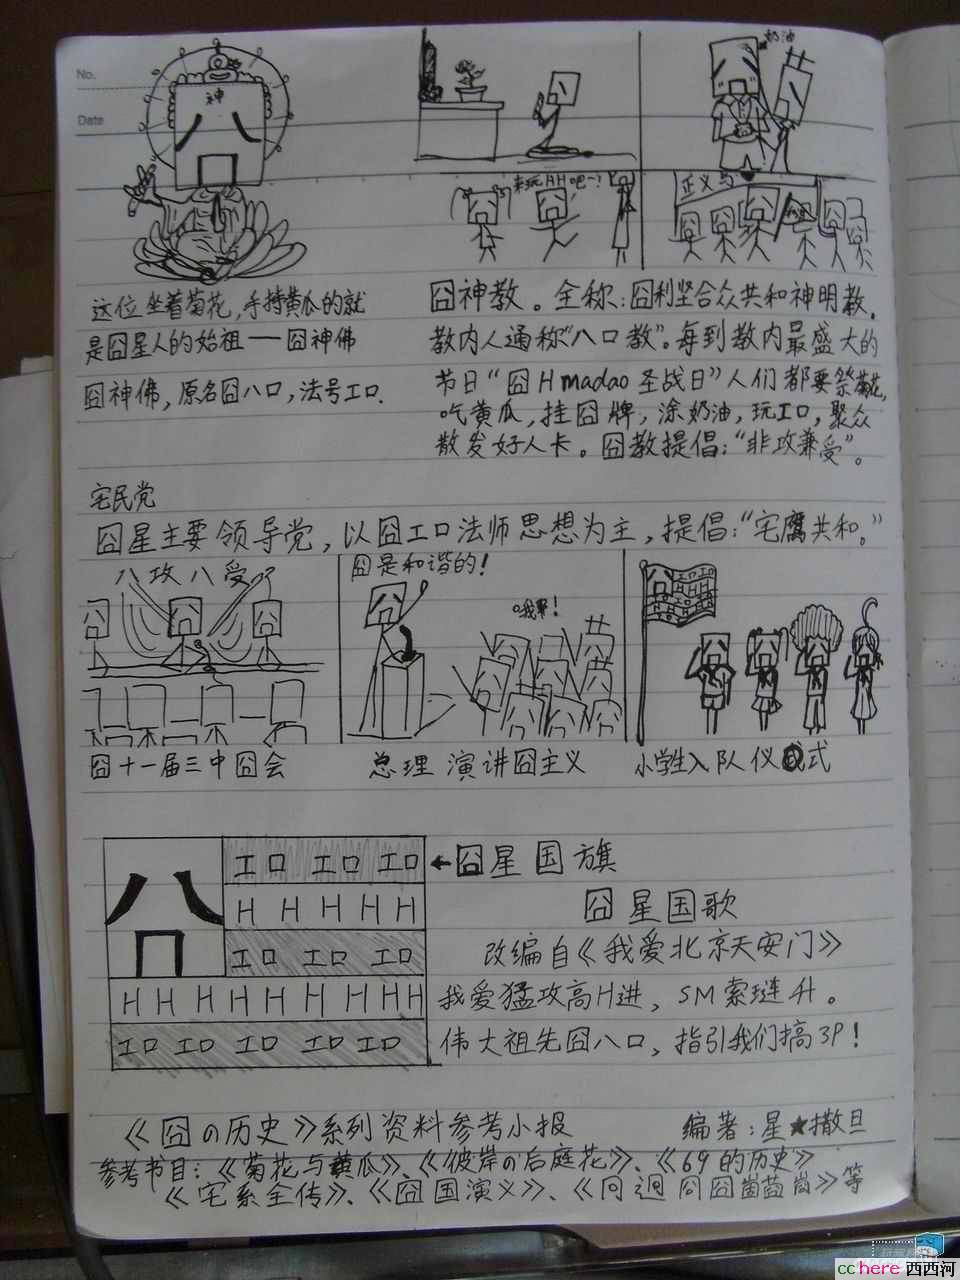 No.
Date
神
奶油
来玩HH吧~?
正义与
这位坐着菊花,手持黄瓜的就
是囧星人的始祖——囧神佛
囧神佛,原名囧八口,法号工口.
囧神教。全称:囧利坚合众共和神明教.
教内人通称“八口教”。每到教内最盛大的
节日“囧H madao 圣战日”人们都要祭菊花,
吃黄瓜,挂囧牌,涂奶油,玩工口,聚众
散发好人卡。囧教提倡:“非攻兼受”。
宅民党
囧星主要领导党,以囧工口法师思想为主,提倡:“宅腐共和。”
八攻八受
囧是和谐的!
囧十一届三中囧会
总理 演讲囧主义
小学生入队仪式
工口 工口 工口
←囧星国旗
H H H H H
囧星国歌
工口 工口 工口
改编自《我爱北京天安门》
H H H H H H H H H
我爱猛攻高H进,SM索琏升。
工口 工口 工口 工口 工口
伟大祖先囧八口,指引我们搞3P!
《囧の历史》系列资料参考小报
编著:星★撒旦
参考书目:《菊花与黄瓜》、《彼岸の后庭花》、《69的历史》
《宅系全传》、《囧国演义》、
等
cchere 西西河